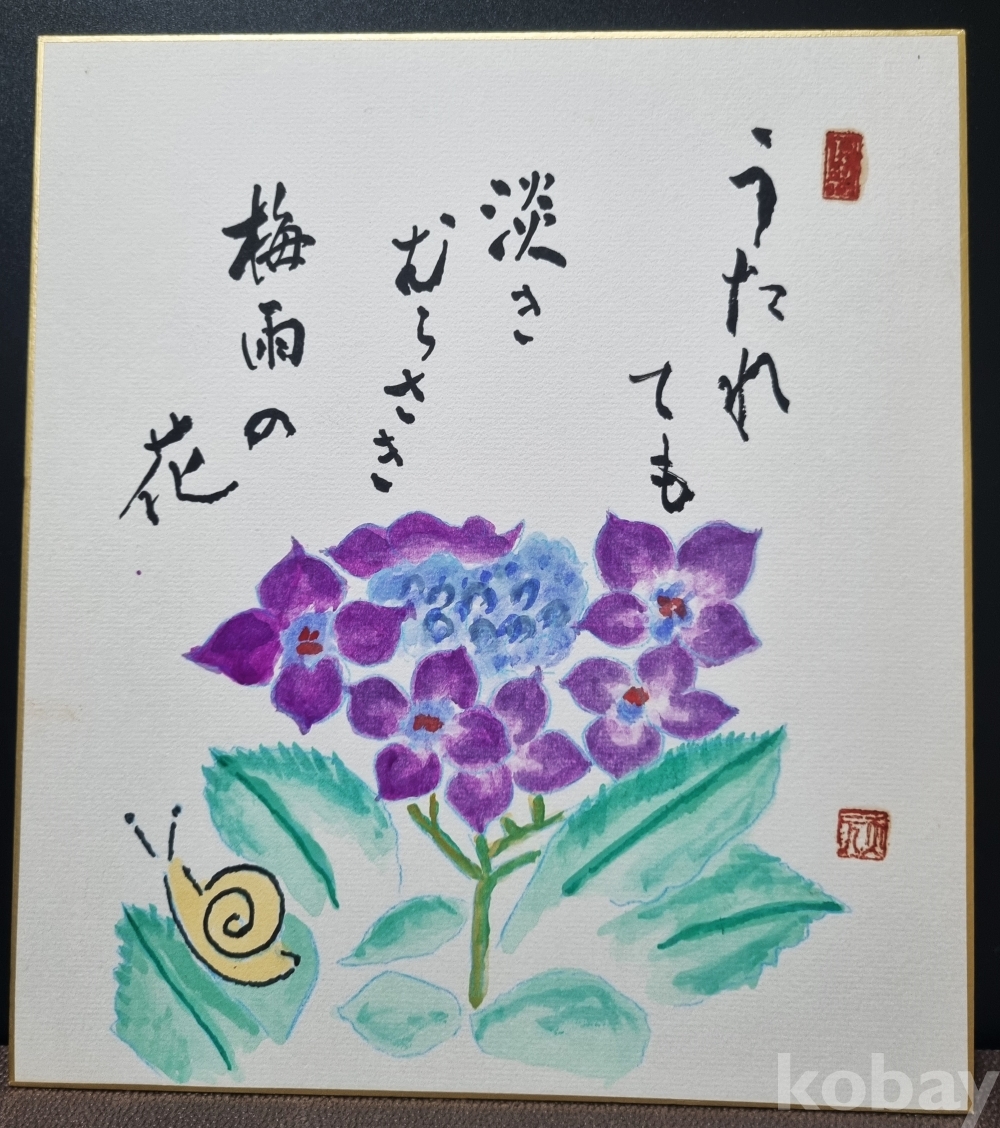 うたれ
ても
淡き
むらさき
梅雨の
花
kobay